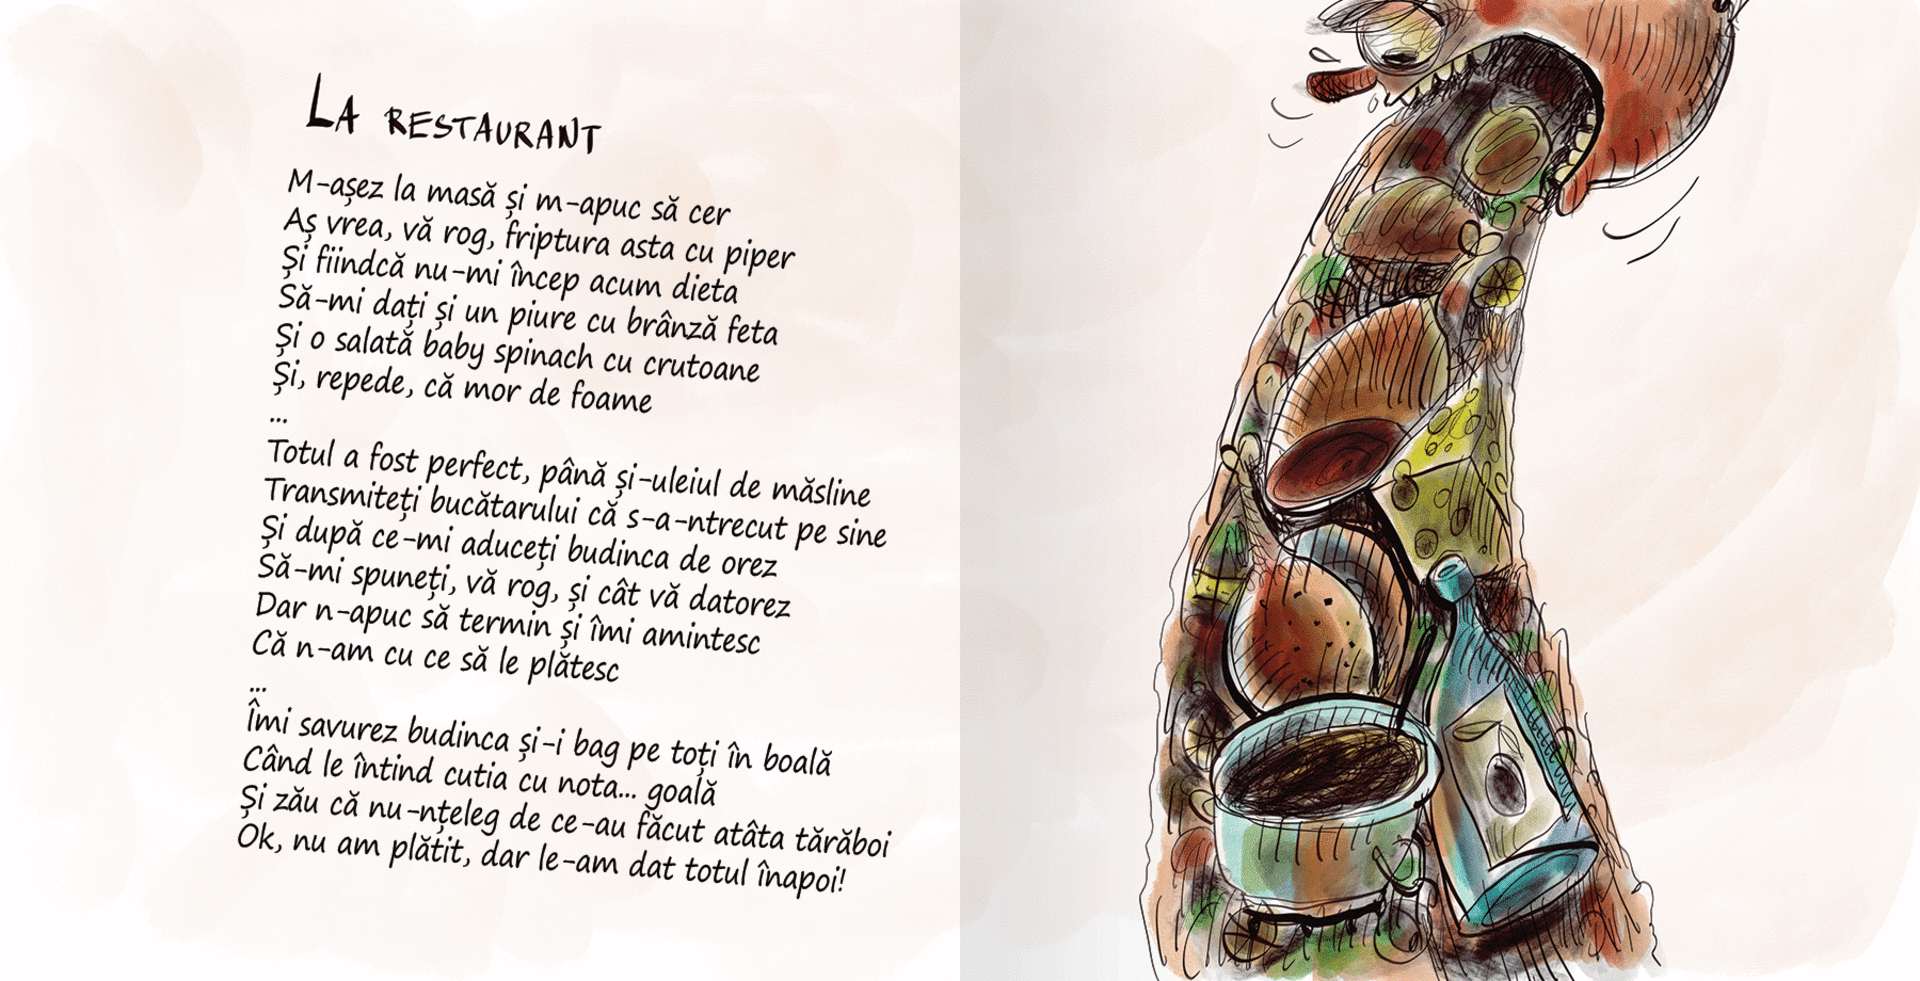 La restaurant
M-așez la masă și m-apuc să cer
Aș vrea, vă rog, friptura asta cu piper
Și fiindcă nu-mi încep acum dieta
Să-mi dați și un piure cu brânză feta
Și o salată baby spinach cu crutoane
Și, repede, că mor de foame
...
Totul a fost perfect, până și-uleiul de măsline
Transmiteți bucătarului că s-a-ntrecut pe sine
Și după ce-mi aduceți budinca de orez
Să-mi spuneți, vă rog, și cât vă datorez
Dar n-apuc să termin și îmi amintesc
Că n-am cu ce să le plătesc
...
Îmi savurez budinca și-i bag pe toți în boală
Când le întind cutia cu nota... goală
Și zău că nu-nțeleg de ce-au făcut atâta tărăboi
Ok, nu am plătit, dar le-am dat totul înapoi!